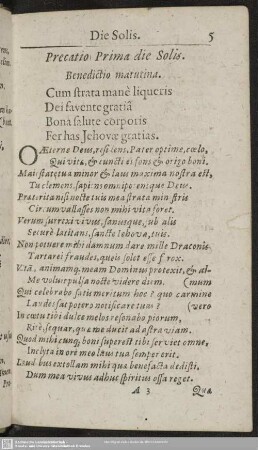 Die Solis. 5
Precatio Prima die Solis.
Benedictio matutina.
Cum strata manè liqueris
Dei favente gratiâ
Bonâ salute corporis
Fer has Jehovæ gratias.
O Æterne Deus, Pater optime, cœlo,
Qui vitæ, & cuncti es fons & origo boni.
Majestate tua minor & laus maxima nostra est,
Tu clemens, sapiens omnipotensque Deus.
Præteritâ nisi nocte tuis mea strata ministris
Circumvallasses non mihi vita foret.
Verùm surrexi vivus, sanusque, sub alis
Securè latitans, sancte Jehova, tuis.
Non potuere mihi damnum dare mille Draconis
Tartarei fraudes, queis solet esse ferox.
Vitā, animamq; meam Dominus protexit, & al-
Me voluit pulsa nocte videre diem. (mum
Qui celebrabo satis meritum hoc? quo carmine
Laudes sat potero notificare tuas? (vero
In cœtu tibi dulce melos resonabo piorum,
Et te sequar, quà me ducit ad astra viam.
Quod mihi cunq; boni superest tibi serviet omne,
Inclyta in ore meo laus tua semper erit.
Laudibus extollam mihi quæ benefacta dedisti,
Dum mea vivus adhuc spiritus ossa reget.
A 3 Quæ